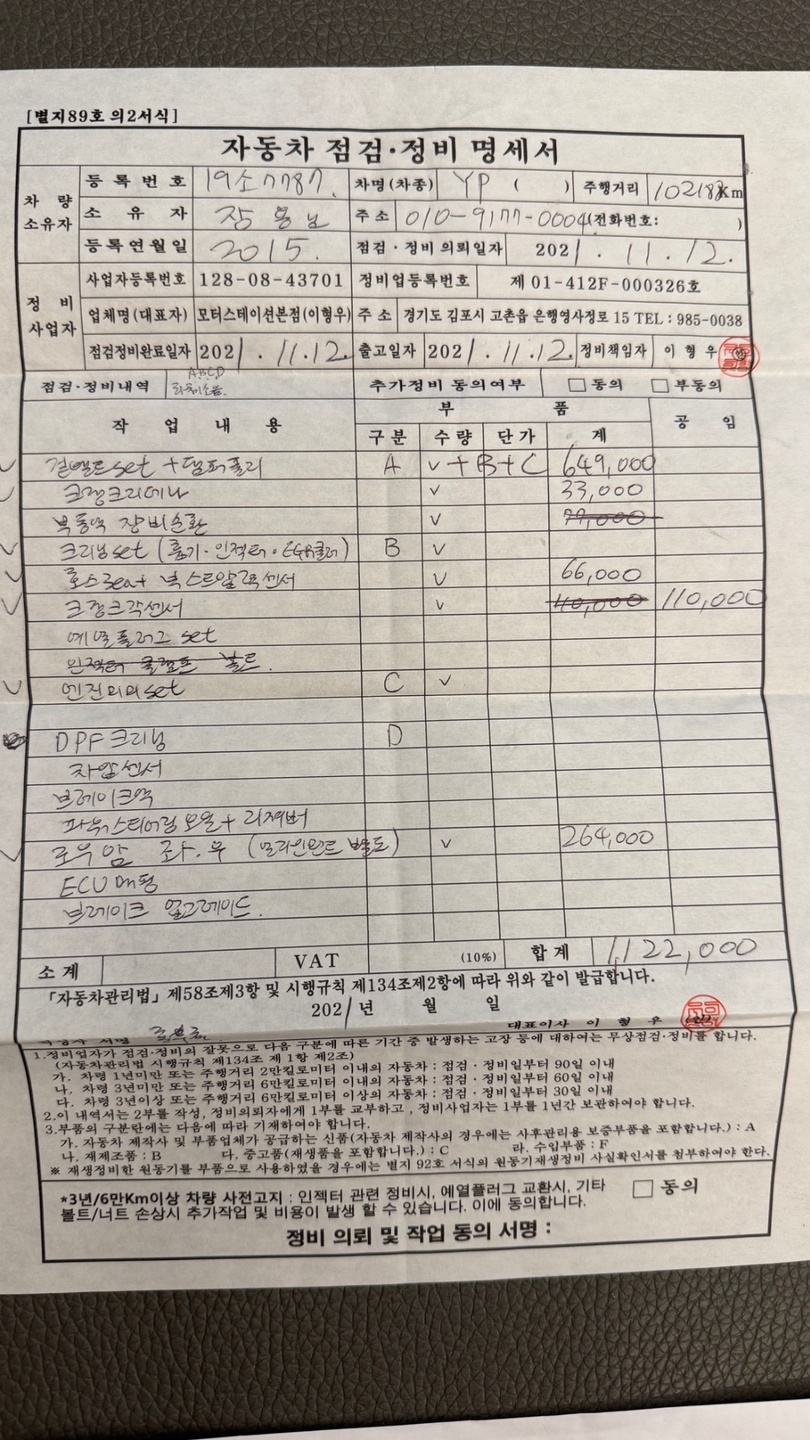 [별지89호 의2서식]
자동차 점검·정비 명세서
차 량 소유자 등 록 번 호 19소7787 차명(차종) YP ( ) 주행거리 102182Km
소 유 자 주 소 010-9177-0004 (전화번호: )
등록연월일 2015. 점검·정비 의뢰일자 2021 . 11 . 12.
정 비 사업자 사업자등록번호 128-08-43701 정비업등록번호 제 01-412F-000326호
업체명(대표자) 모터스테이션본점(이형우) 주 소 경기도 김포시 고촌읍 은행영사정로 15 TEL : 985-0038
점검정비완료일자 2021 . 11 . 12. 출고일자 2021 . 11 . 12. 정비책임자 이 형 우
점검·정비내역 ABCD 추가정비 동의여부 □ 동의 □ 부동의
작 업 내 용 부 품 공 임
구분 수량 단가 계
겉벨트set + 댐퍼풀리 A v + B + C 649,000
크랭크리데나 v 33,000
부동액 장비순환 v 77,000
크리닝set (흡기·인젝터·EGR쿨러) B v
호스Seat 녹스트알 센서 v 66,000
크랭크각센서 v 110,000 110,000
예열플러그 set
인젝터 클램프 볼트.
엔진미미set C v
DPF 크리닝 D
차압센서
브레이크액
파워스티어링오일 + 리저버
로우암 좌.우 (얼라인먼트 별도) v 264,000
ECU 매핑
브레이크 업그레이드.
소 계 VAT (10%) 합 계 1,122,000
「자동차관리법」제58조제3항 및 시행규칙 제134조제2항에 따라 위와 같이 발급합니다.
2021년 월 일
대표이사 이 형 우 (인)
1.정비업자가 점검·정비의 잘못으로 다음 구분에 따른 기간 중 발생하는 고장 등에 대하여는 무상점검·정비를 합니다.
(자동차관리법 시행규칙 제134조 제 1항 제2조)
가. 차령 1년미만 또는 주행거리 2만킬로미터 이내의 자동차 : 점검 · 정비일부터 90일 이내
나. 차령 3년미만 또는 주행거리 6만킬로미터 이내의 자동차 : 점검 · 정비일부터 60일 이내
다. 차령 3년이상 또는 주행거리 6만킬로미터 이상의 자동차 : 점검 · 정비일부터 30일 이내
2.이 내역서는 2부를 작성, 정비의뢰자에게 1부를 교부하고 , 정비사업자는 1부를 1년간 보관하여야 합니다.
3.부품의 구분란에는 다음에 따라 기재하여야 합니다.
가. 자동차 제작사 및 부품업체가 공급하는 신품(자동차 제작사의 경우에는 사후관리용 보증부품을 포함합니다.) : A
나. 재제조품 : B 다. 중고품(재생품을 포함합니다.) : C 라. 수입부품 : F
※ 재생정비한 원동기를 부품으로 사용하였을 경우에는 별지 92호 서식의 원동기재생정비 사실확인서를 첨부하여야 한다.
*3년/6만Km이상 차량 사전고지 : 인젝터 관련 정비시, 예열플러그 교환시, 기타 □ 동의
볼트/너트 손상시 추가작업 및 비용이 발생 할 수 있습니다. 이에 동의합니다.
정비 의뢰 및 작업 동의 서명 :